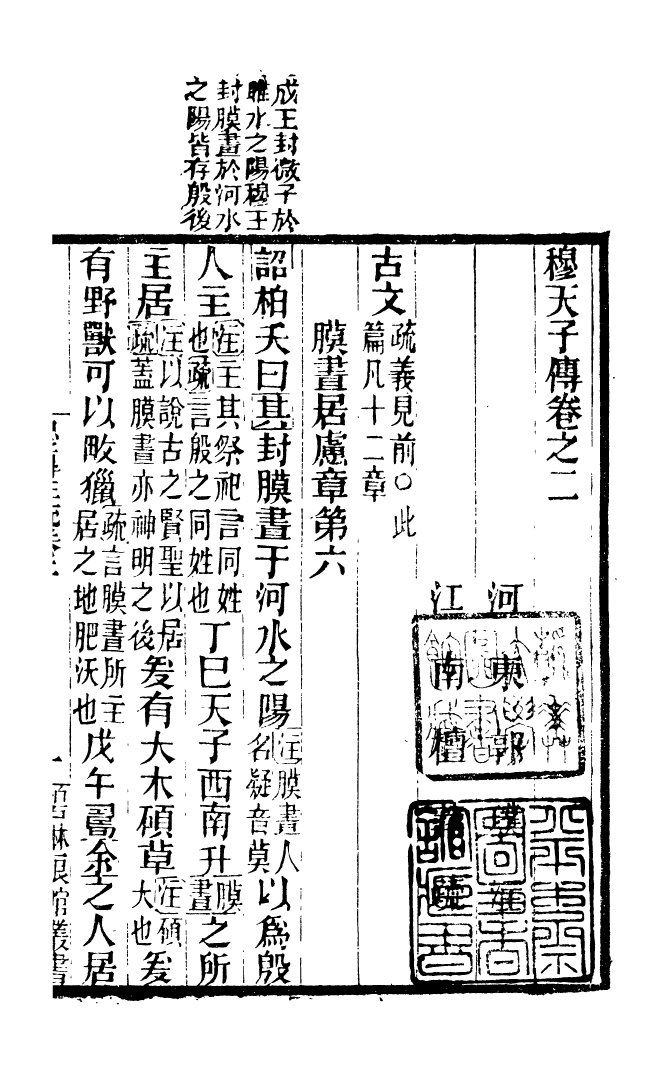 成王封微子於
睢水之陽穆王
封膜晝於河水
之陽皆存殷後
穆天子傳卷之二
河東郭璞注
江南檀萃疏
古文疏義見前○此篇凡十二章
膜晝居慮章第六
詔柏夭曰其封膜晝于河水之陽注膜晝人名疑音莫以爲殷
人主注主其祭祀言同姓也疏言殷之同姓也丁巳天子西南升膜晝之所
主居注以說古之賢聖以居疏蓋膜晝亦神明之後爰有大木碩草注碩大也爰
有野獸可以畋獵疏言膜晝所主居之地肥沃也戊午之人居
琳琅館叢書